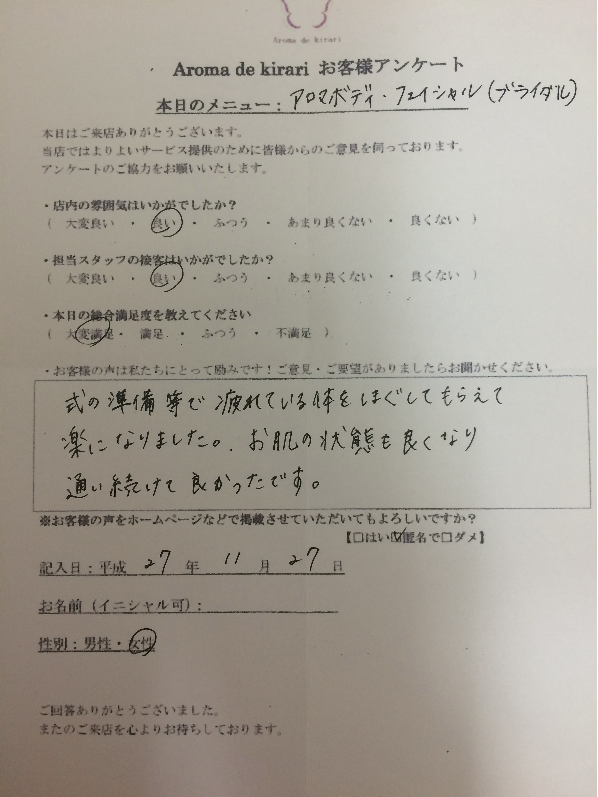 Aroma de kirari
Aroma de kirari お客様アンケート
本日のメニュー： アロマボディ・フェイシャル(ブライダル)
本日はご来店ありがとうございます。
当店ではよりよいサービス提供のために皆様からのご意見を伺っております。
アンケートのご協力をお願いいたします。
・店内の雰囲気はいかがでしたか？
（ 大変良い ・ 良い ・ ふつう ・ あまり良くない ・ 良くない ）
・担当スタッフの接客はいかがでしたか？
（ 大変良い ・ 良い ・ ふつう ・ あまり良くない ・ 良くない ）
・本日の総合満足度を教えてください
（ 大変満足・ 満足 ・ ふつう ・ 不満足 ）
・お客様の声は私たちにとって励みです！ご意見・ご要望がありましたらお聞かせください。
式の準備等で疲れている体をほぐしてもらえて
楽になりました。お肌の状態も良くなり
通い続けて良かったです。
※お客様の声をホームページなどで掲載させていただいてもよろしいですか？
【□はい☑匿名で□ダメ】
記入日：平成 27 年 11 月 27 日
お名前（イニシャル可）：
性別：男性・女性
ご回答ありがとうございました。
またのご来店を心よりお待ちしております。